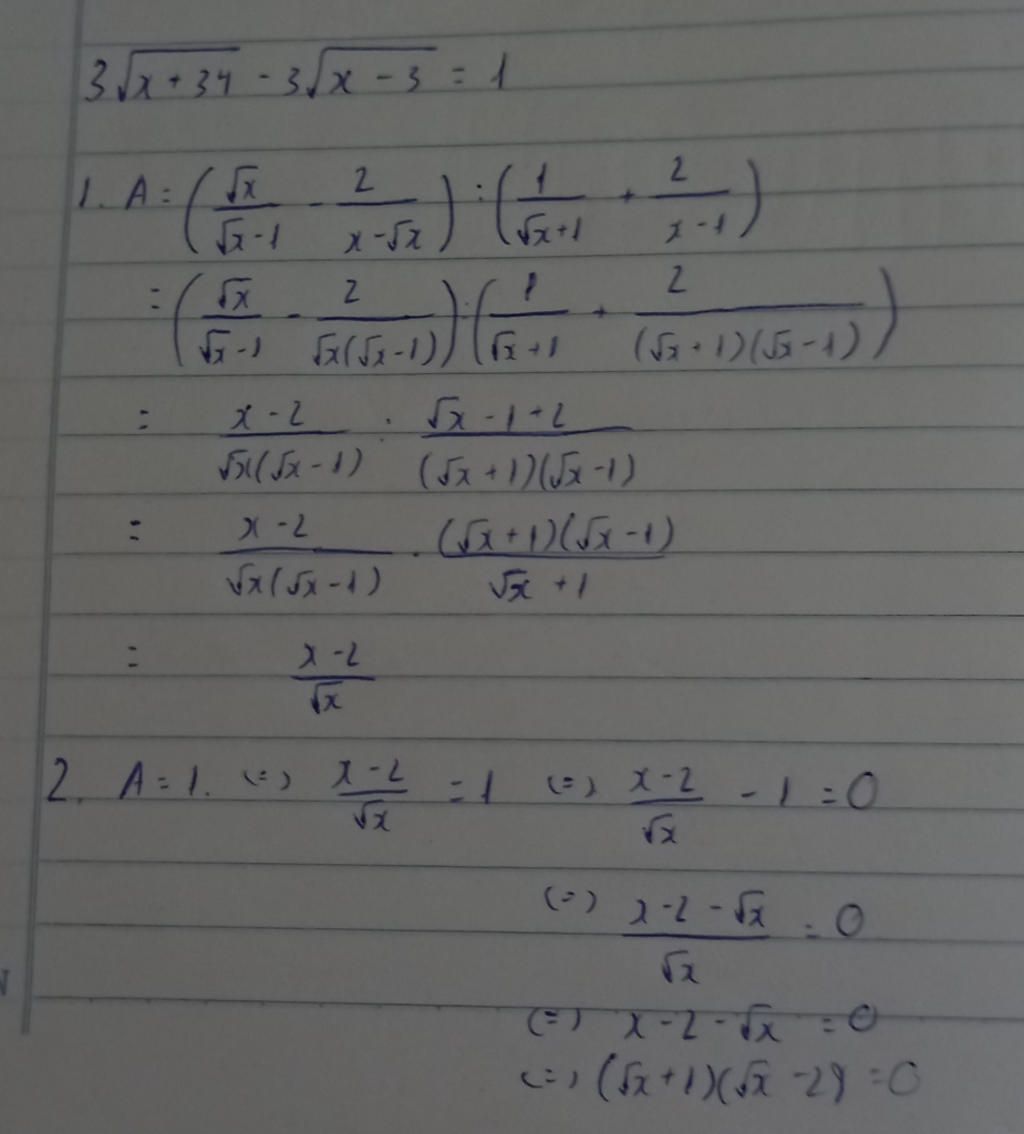 3√(x+34) - 3√(x-3) = 1
1. A = (√x/(√x-1) - 2/(x-√x)) : (1/(√x+1) + 2/(x-1))
= (√x/(√x-1) - 2/(√x(√x-1))) : (1/(√x+1) + 2/((√x+1)(√x-1)))
= (x-2)/(√x(√x-1)) : (√x-1+2)/((√x+1)(√x-1))
= (x-2)/(√x(√x-1)) . ((√x+1)(√x-1))/(√x+1)
= (x-2)/√x
2. A = 1. (=) (x-2)/√x = 1 (=) (x-2)/√x - 1 = 0
(=) (x-2-√x)/√x = 0
(=) x-2-√x = 0
(=) (√x+1)(√x-2) = 0